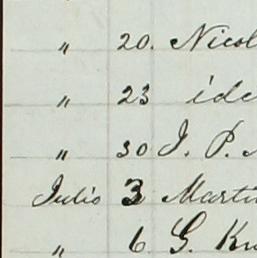 " 20. Nicol
" 23 ide
" 30 J. P.
Julio 3 Marti
" 6 G. Kr